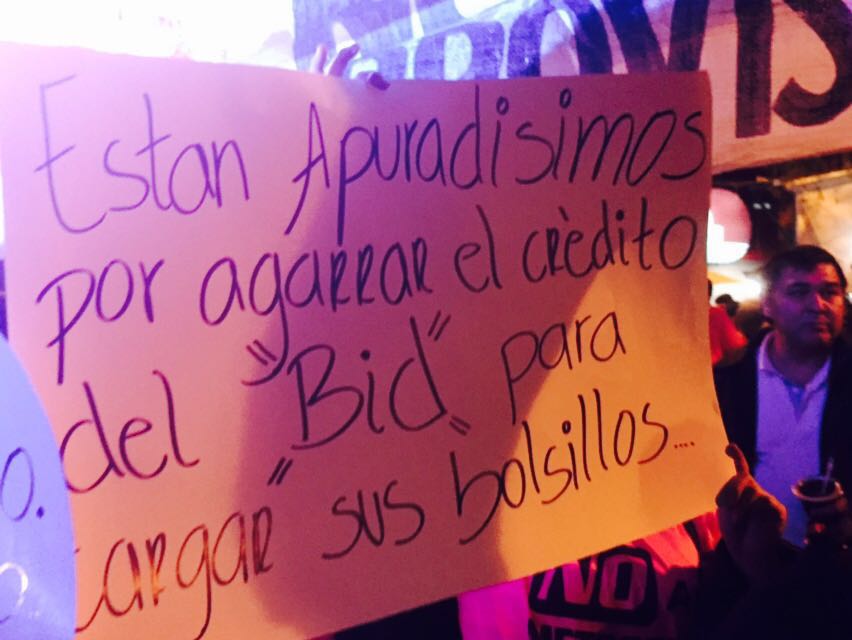 Estan Apuradisimos
por agarrar el crèdito
del "Bid" para
cargar" sus bolsillos....
O.
NO